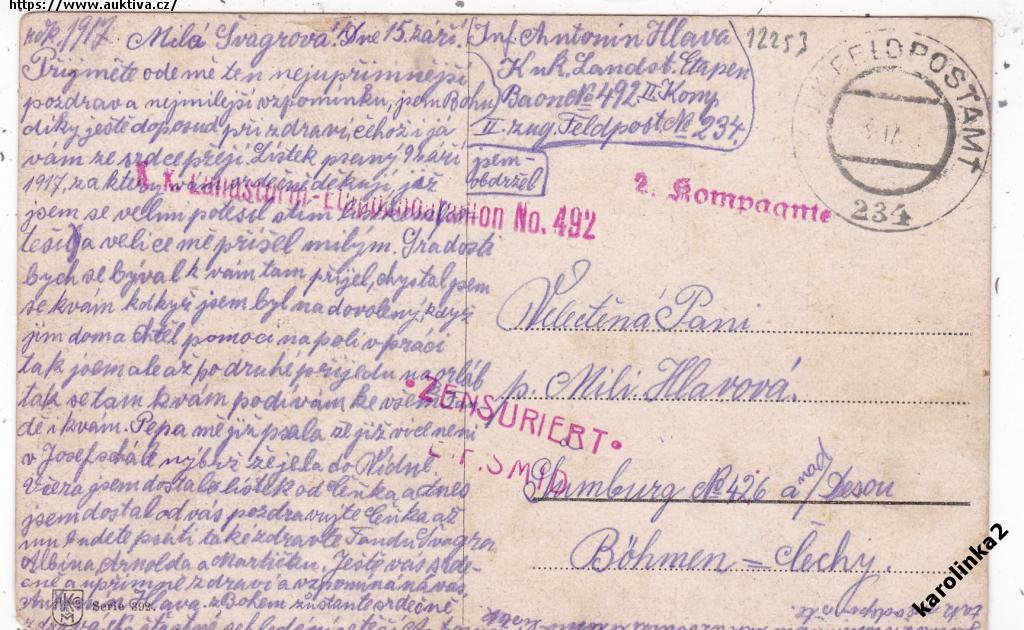 https://www.auktiva.cz/
rok. 1917 Milá Švagrová! Dne 15. září.
Přijměte ode mě ten nejupřimnější
pozdrav a nejmilejší vzpomínku, jsem Bohu
díky ještě doposud při zdraví, čehož i já
vám ze srdce přeji. Lístek psaný 9 září
1917, za který vám srdečně děkuji, jež
jsem se velmi potěšil
těšil a velice mě přišel milým. S radosti
bych se býval k vám tam přijel, chystal jsem
se k vám kdkyž jsem byl na dovolený, když
jim doma chtěl pomoci na poli v práci
tak jsem ale až po druhé přijedu na orláb
tak se tam k vám podívám ke všem
de i k vám. Pepa mě již psala že již více není
v Josefschále nýbrž že jela do Vídně.
Včera jsem dostal lístek od Čeňka a dnes
jsem dostal od vás pozdravujte Čeňka až
mu budete psáti také zdravte Fandu Švagra
Albína Arnolda a Martičku. Ještě vás srde-
čně a upřímne zdraví a vzpomíná na vás
Antonín Hlava. z Bohem zůstante srdečně
Inf. Antonin Hlava
K.u.k. Landst. Etapen
Baon № 492. II. Komp
II. zug. Feldpost № 234.
jsem-
obdržel
12253
K.K. FELDPOSTAMT
234
k. k. Landsturm-Etappenbataillon No. 492
2. Kompagnie
•ZENSURIERT•
Velectěná Pani
p. Mili. Hlavová.
Numburg № 426 a/nad Desou
Böhmen = Čechy.
Serie 392
karolinka2